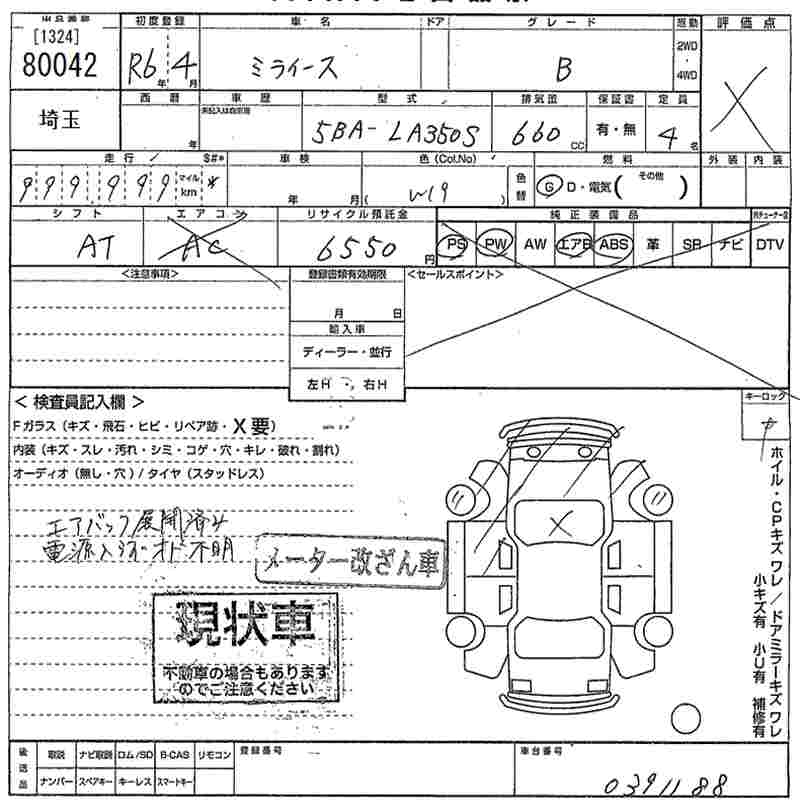 出品番号 初度登録 車名 ドア グレード 駆動 評価点
[1324]
80042 R6年4月 ミライース B 2WD・4WD X
埼玉 西暦 年 車歴 未記入は自家用 型式 排気量 保証書 定員
5BA-LA350S 660cc 有・無 4名
走行 S#* 車検 色(Col.No) 燃料 外装 内装
999999 マイル km * 年 月 ( W19 ) 色替 G D・電気( その他 )
シフト エアコン リサイクル預託金 純正装備品
AT AC 6550円 PS PW AW エアB ABS 革 SR ナビ DTV
<注意事項> 登録書類有効期限 <セールスポイント>
月 日
輸入車
ディーラー・並行
左H・右H
<検査員記入欄> キーロック
Fガラス(キズ・飛石・ヒビ・リペア跡・X要)
内装(キズ・スレ・汚れ・シミ・コゲ・穴・キレ・破れ・割れ)
オーディオ(無し・穴)/タイヤ(スタッドレス)
エアバック展開済み
電源入らずオド不明
メーター改ざん車
現状車
不動車の場合もあります
のでご注意ください
ホイル・CPキズ ワレ/ドアミラーキズ ワレ
小キズ有 小U有 補修有
後送品 取説 ナビ取説 ロム/SD B-CAS リモコン 登録番号 車台番号
ナンバー スペアキー キーレス スマートキー 0391188